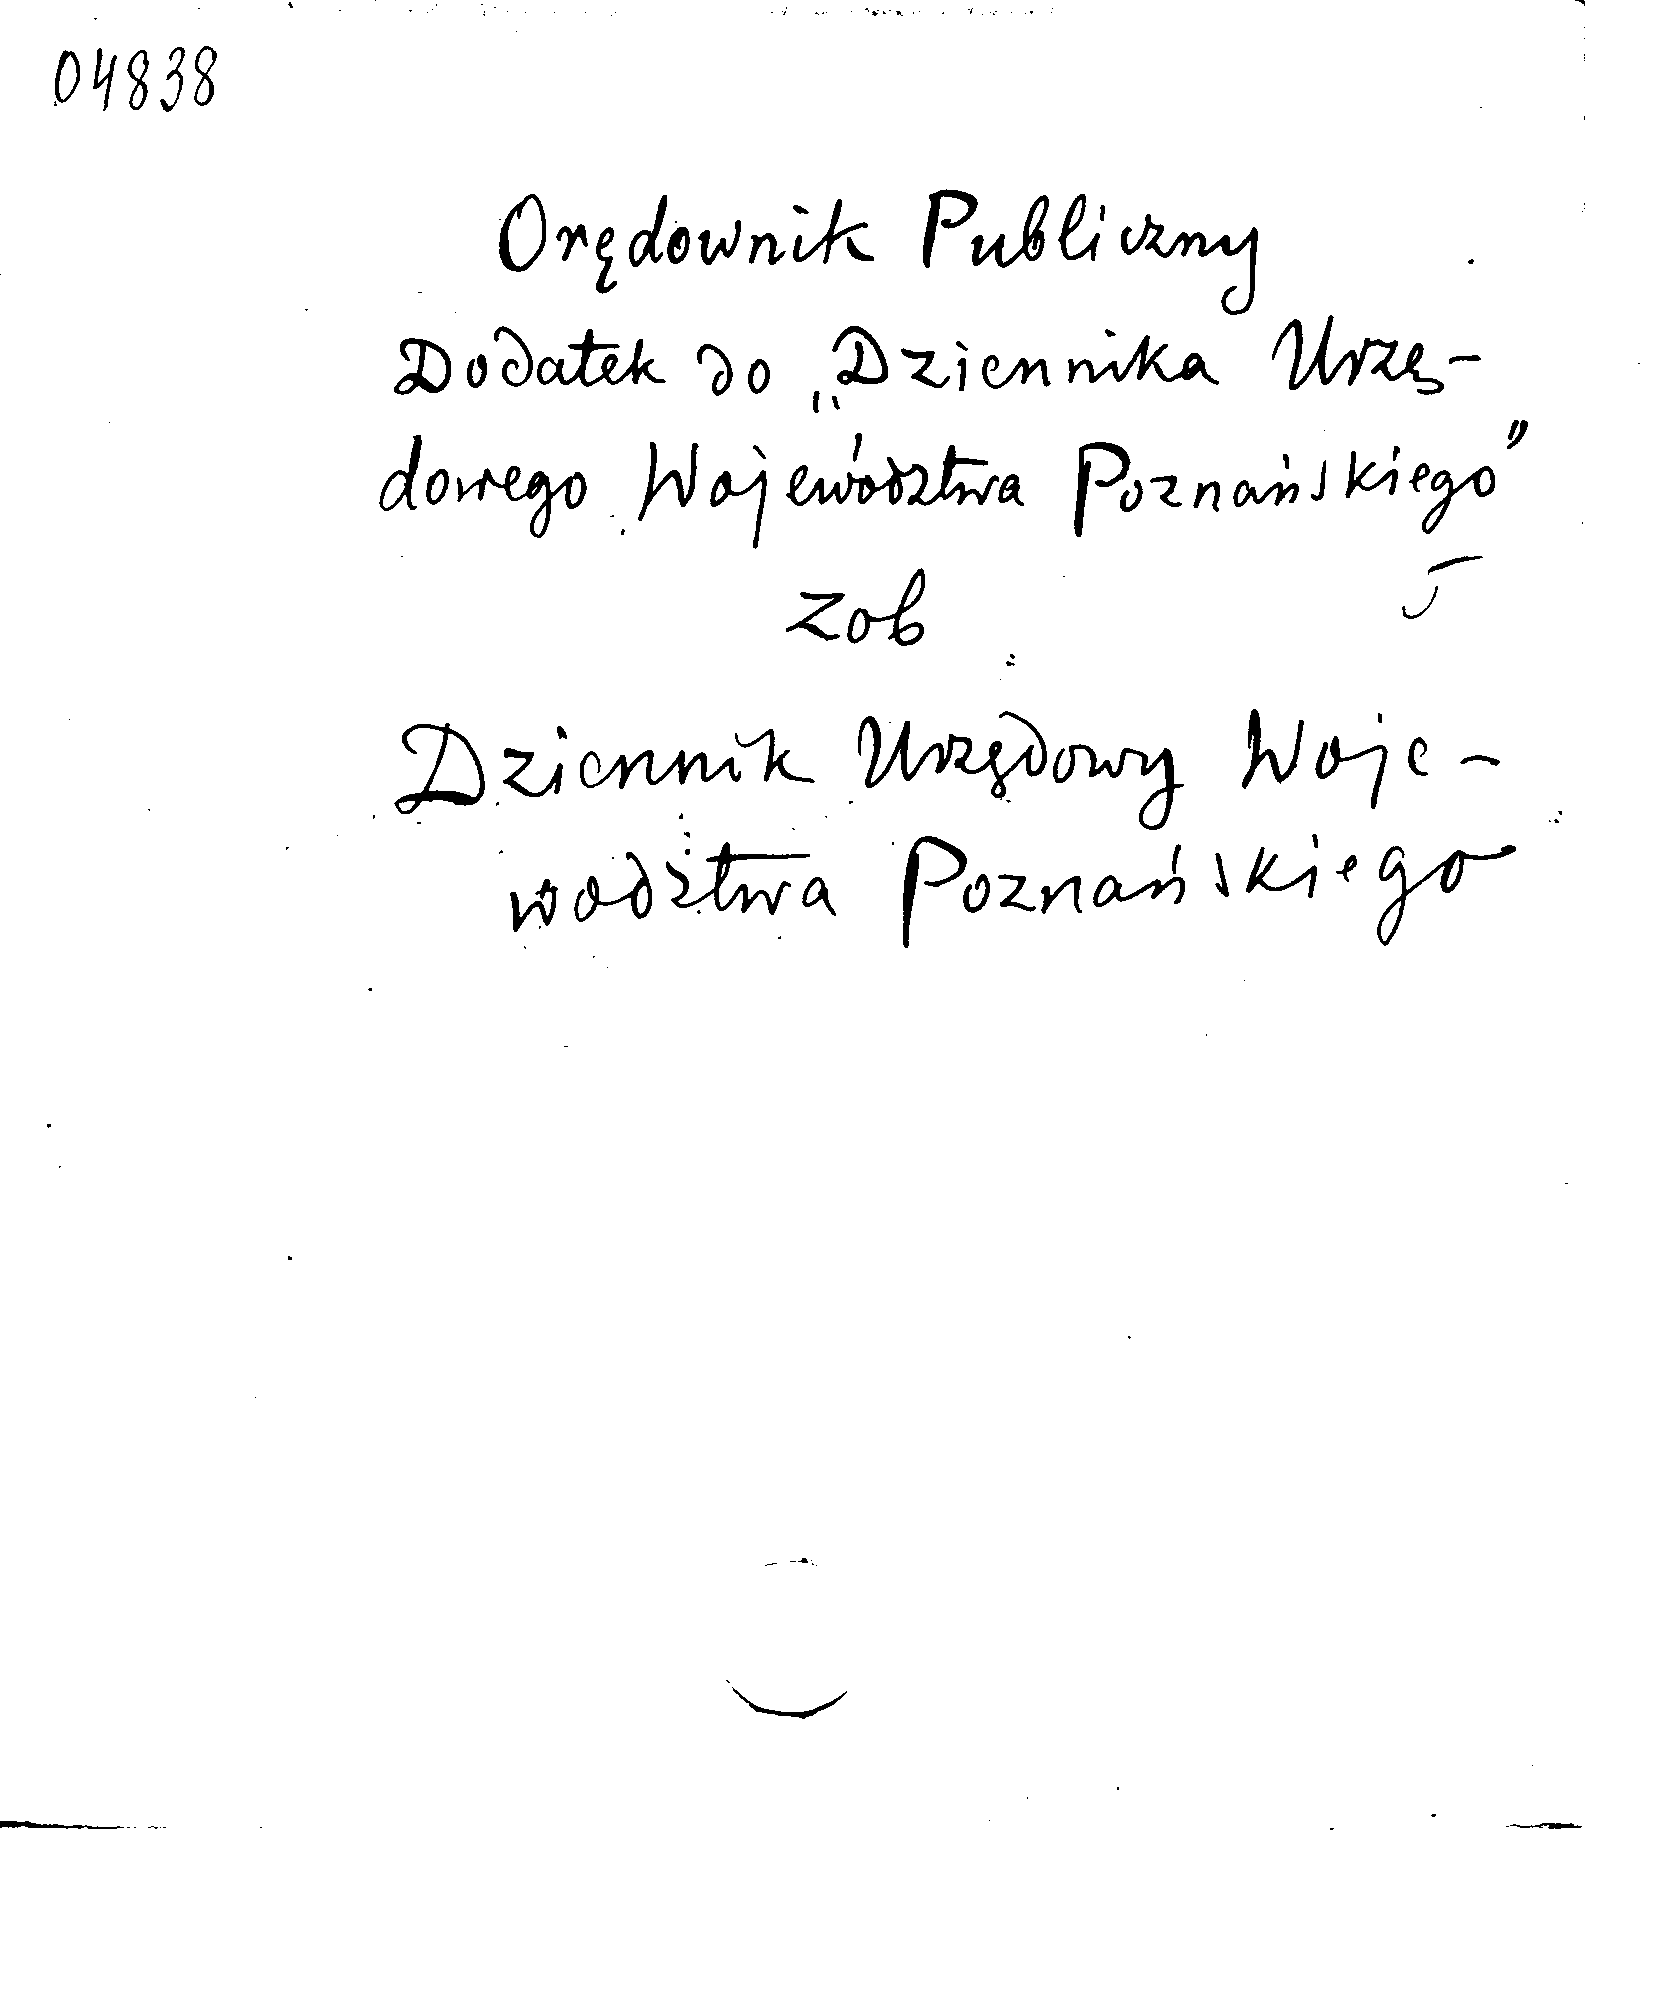 04838
Orędownik Publiczny
Dodatek do „Dziennika Urzę-
dowego Województwa Poznańskiego”
zob
Dziennik Urzędowy Woje-
wodztwa Poznańskiego